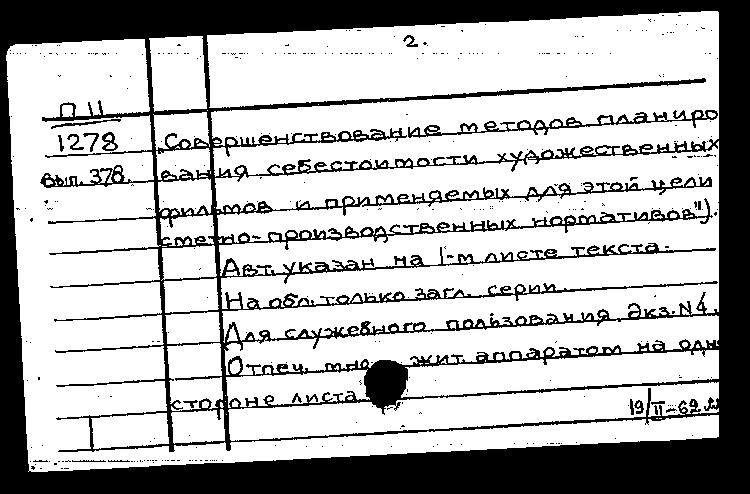 2.
П 11
1278 „Совершенствование методов планиро
вып. 378. вания себестоимости художественных
фильмов и применяемых для этой цели
сметно-производственных нормативов").
Авт. указан на 1-м листе текста.
На обл. только загл. серии.
Для служебного пользования. Экз. N 4.
Отпеч. мно жит. аппаратом на одн
стороне листа
19/II-62